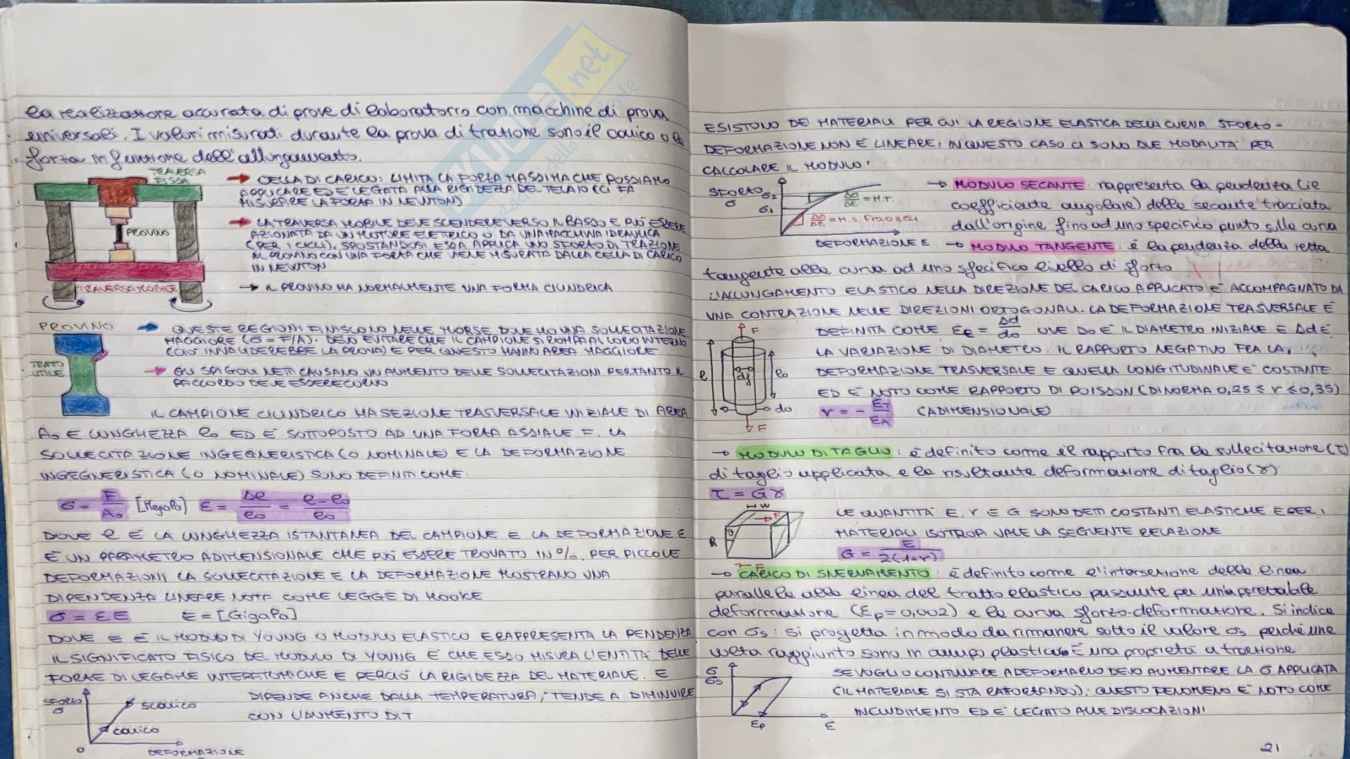 la realizzazione accurata di prove di laboratorio con macchine di prova
universali. I valori misurati durante la prova di trazione sono il carico o la
forza in funzione dell'allungamento.
TRAVERSA
FISSA
PROVINO
TRAVERSA MOBILE
→ CELLA DI CARICO: LIMITA LA FORZA MASSIMA CHE POSSIAMO
APPLICARE ED È LEGATA ALLA RIGIDEZZA DEL TELAIO (CI FA
MISURARE LA FORZA IN NEWTON)
→ LA TRAVERSA MOBILE DEVE SCENDERE VERSO IL BASSO E PUÒ ESSERE
AZIONATA DA UN MOTORE ELETTRICO O DA UNA MACCHINA IDRAULICA
(PER I CICLI). SPOSTANDOSI ESSA APPLICA UNO SFORZO DI TRAZIONE
AL PROVINO CON UNA FORZA CHE VIENE MISURATA DALLA CELLA DI CARICO
IN NEWTON
→ IL PROVINO HA NORMALMENTE UNA FORMA CILINDRICA
PROVINO
TRATTO
UTILE
→ QUESTE REGIONI FINISCONO NELLE MORSE DOVE HO UNA SOLLECITAZIONE
MAGGIORE (σ = F/A). DEVO EVITARE CHE IL CAMPIONE SI ROMPA AL LORO INTERNO
(CIÒ INVALIDEREBBE LA PROVA) E PER QUESTO HANNO AREA MAGGIORE
→ GLI SPIGOLI NETTI CAUSANO UN AUMENTO DELLE SOLLECITAZIONI PERTANTO IL
RACCORDO DEVE ESSERE CURVO
IL CAMPIONE CILINDRICO HA SEZIONE TRASVERSALE INIZIALE DI AREA
A₀ E LUNGHEZZA l₀ ED È SOTTOPOSTO AD UNA FORZA ASSIALE F. LA
SOLLECITAZIONE INGEGNERISTICA (O NOMINALE) E LA DEFORMAZIONE
INGEGNERISTICA (O NOMINALE) SONO DEFINITI COME:
σ = F/A₀ [MegaPa] ε = Δl/l₀ = l-l₀/l₀
DOVE l È LA LUNGHEZZA ISTANTANEA DEL CAMPIONE E LA DEFORMAZIONE ε
È UN PARAMETRO ADIMENSIONALE CHE PUÒ ESSERE TROVATO IN %. PER PICCOLE
DEFORMAZIONI LA SOLLECITAZIONE E LA DEFORMAZIONE MOSTRANO UNA
DIPENDENZA LINEARE NOTA COME LEGGE DI HOOKE
σ = εE E = [GigaPa]
DOVE E È IL MODULO DI YOUNG O MODULO ELASTICO E RAPPRESENTA LA PENDENZA.
IL SIGNIFICATO FISICO DEL MODULO DI YOUNG È CHE ESSO MISURA L'ENTITÀ DELLE
FORZE DI LEGAME INTERATOMICHE E PERCIÒ LA RIGIDEZZA DEL MATERIALE. E
DIPENDE ANCHE DALLA TEMPERATURA; TENDE A DIMINUIRE
CON L'AUMENTO DI T
SFORZO
σ
scarico
carico
0
DEFORMAZIONE
ESISTONO DEI MATERIALI PER CUI LA REGIONE ELASTICA DELLA CURVA SFORZO-
DEFORMAZIONE NON È LINEARE: IN QUESTO CASO CI SONO DUE MODALITÀ PER
CALCOLARE IL MODULO:
SFORZO
σ
σ₂
σ₁
Δσ/Δε = M.T.
Δσ/Δε = M.S. FRA 0 E σ₁
DEFORMAZIONE ε
→ MODULO SECANTE: rappresenta la pendenza (ie
coefficiente angolare) della secante tracciata
dall'origine fino ad uno specifico punto sulla curva
→ MODULO TANGENTE: è la pendenza della retta
tangente alla curva ad uno specifico livello di sforzo
L'ALLUNGAMENTO ELASTICO NELLA DIREZIONE DEL CARICO APPLICATO È ACCOMPAGNATO DA
UNA CONTRAZIONE NELLE DIREZIONI ORTOGONALI. LA DEFORMAZIONE TRASVERSALE È
DEFINITA COME εt = Δd/d₀ OVE D₀ È IL DIAMETRO INIZIALE E Δd È
LA VARIAZIONE DI DIAMETRO. IL RAPPORTO NEGATIVO FRA LA
DEFORMAZIONE TRASVERSALE E QUELLA LONGITUDINALE È COSTANTE
ED È NOTO COME RAPPORTO DI POISSON (DI NORMA 0,25 ≤ ν ≤ 0,35)
ν = - εT/εA (ADIMENSIONALE)
F
l
l₀
df
d₀
F
→ MODULO DI TAGLIO: è definito come il rapporto fra la sollecitazione (τ)
di taglio applicata e la risultante deformazione di taglio (γ)
τ = Gγ
W
LE QUANTITÀ E, ν E G SONO DETTI COSTANTI ELASTICHE E PER I
MATERIALI ISOTROPI VALE LA SEGUENTE RELAZIONE
G = E/2(1+ν)
→ CARICO DI SNERVAMENTO: è definito come l'intersezione della linea
parallela alla linea del tratto elastico passante per una prestabile
deformazione (εp = 0,002) e la curva sforzo-deformazione. Si indica
con σs: si progetta in modo da rimanere sotto il valore σs perché una
volta raggiunto sono in campo plastico. È una proprietà a trazione
σ
σs
εp
ε
SE VOGLIO CONTINUARE A DEFORMARLO DEVO AUMENTARE LA σ APPLICATA
(IL MATERIALE SI STA RAFFORZANDO): QUESTO FENOMENO È NOTO COME
INCRUDIMENTO ED È LEGATO ALLE DISLOCAZIONI
21